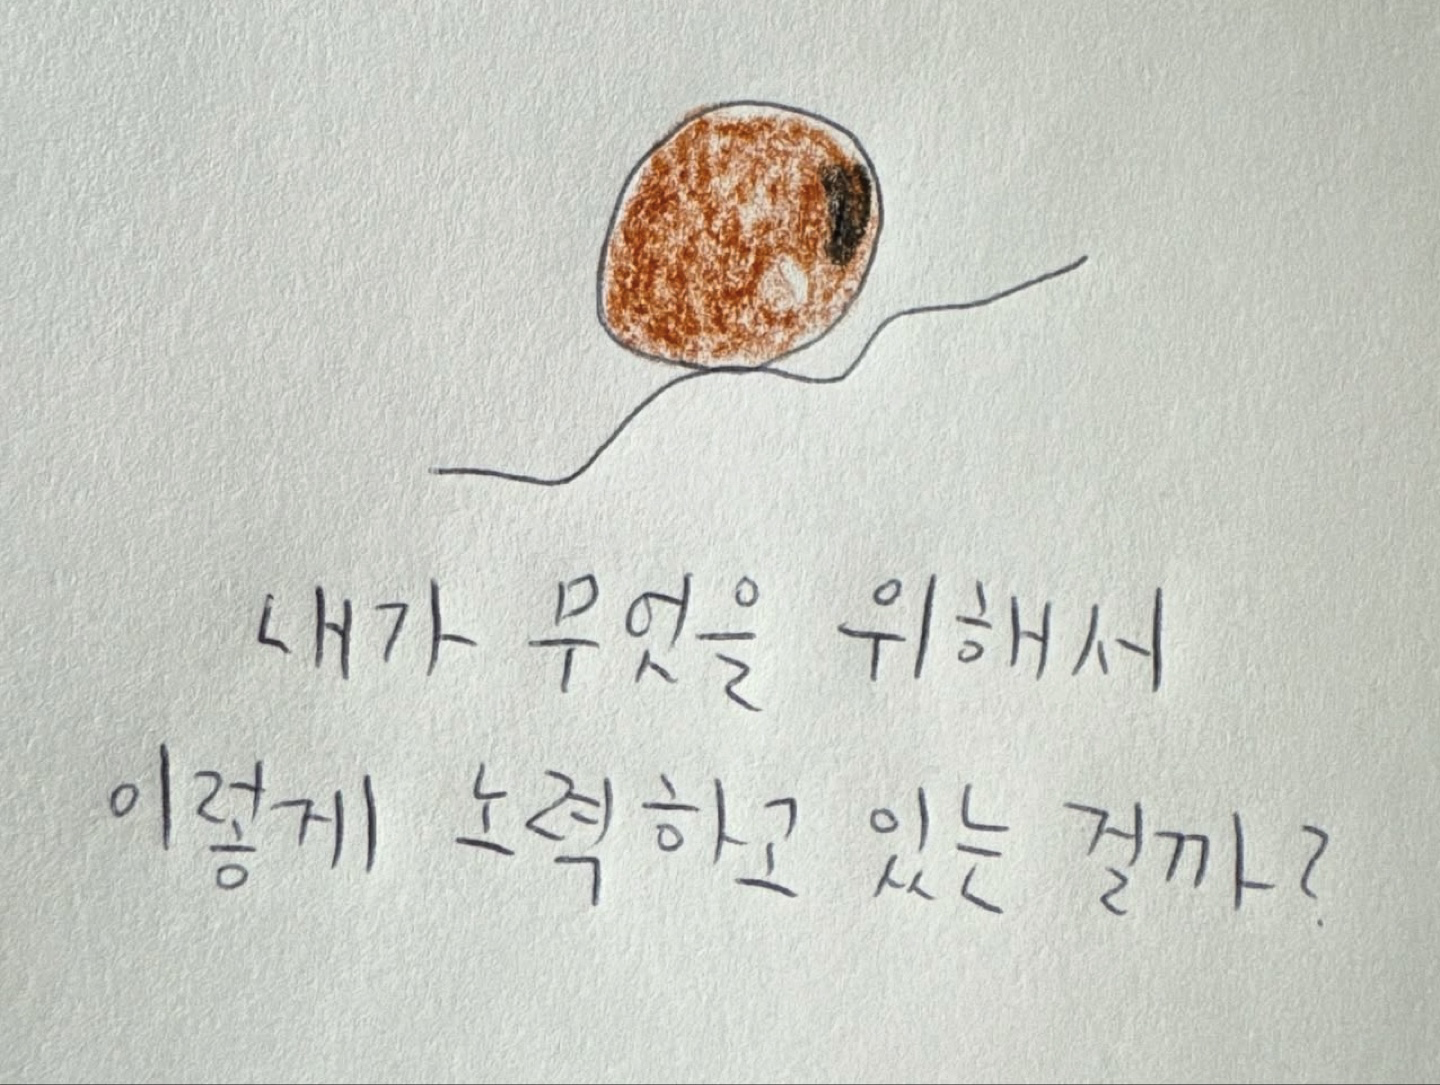 내가 무엇을 위해서
이렇게 노력하고 있는 걸까?